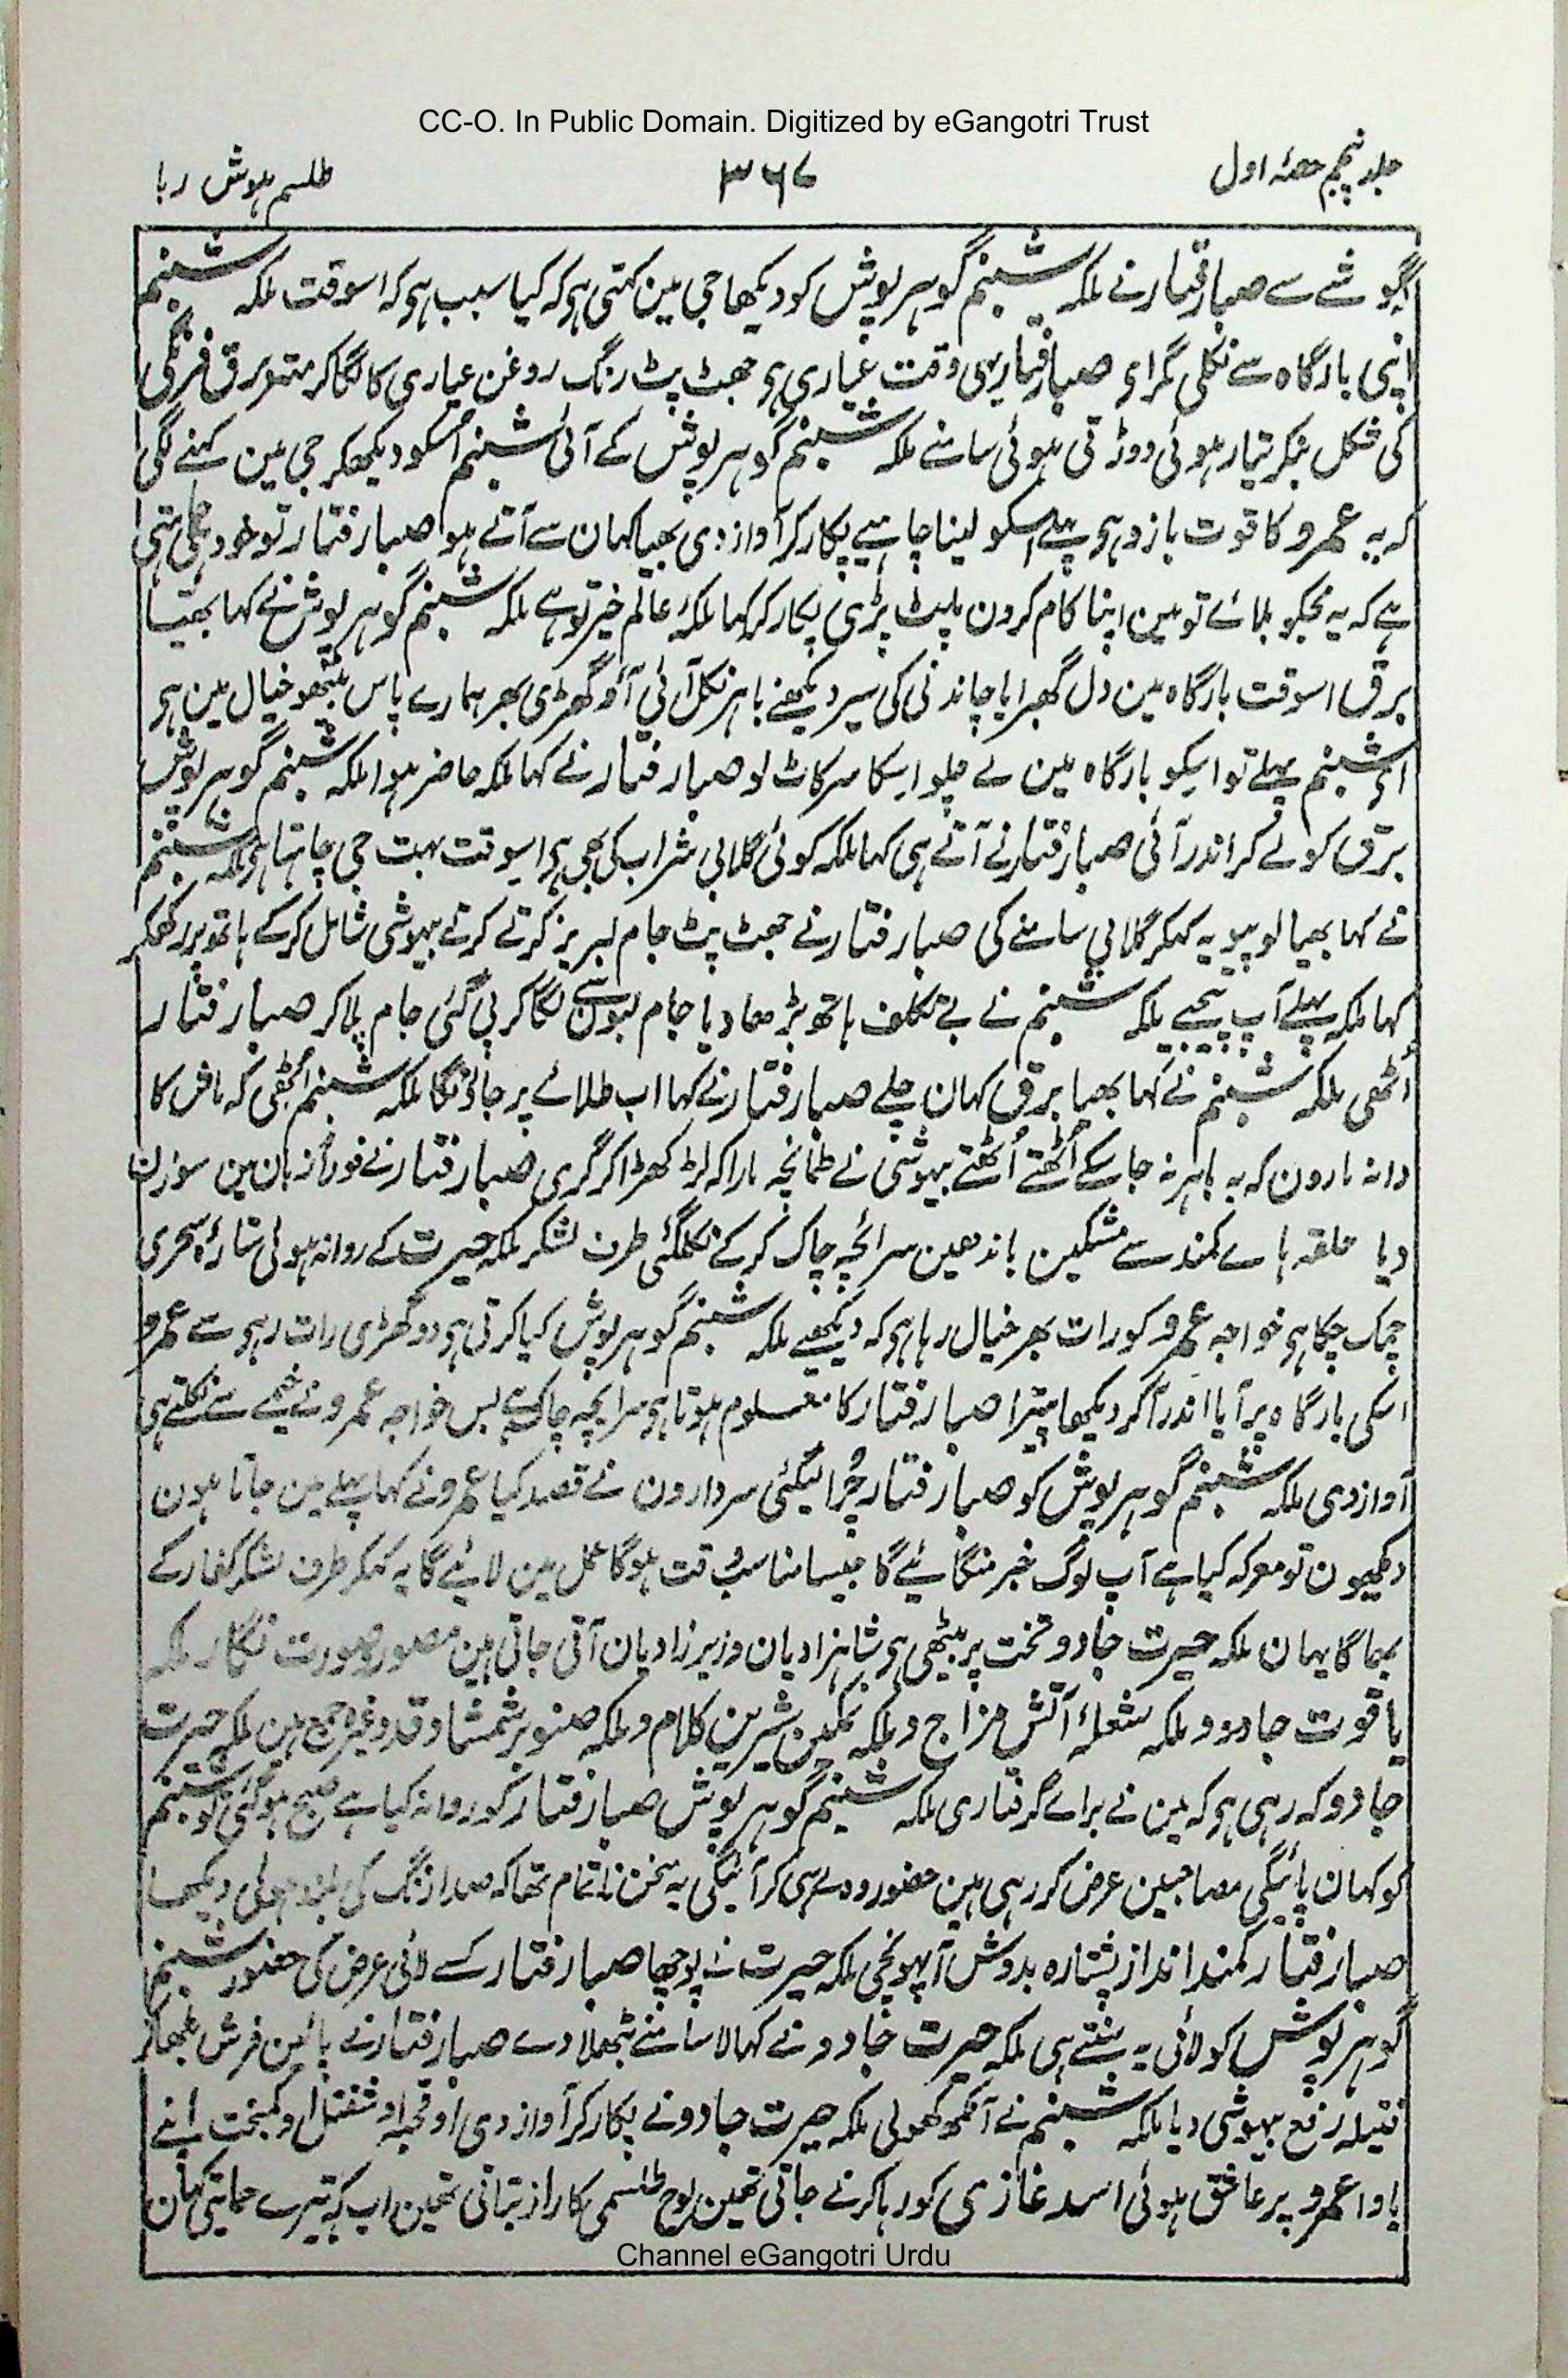 CC-O. In Public Domain. Digitized by eGangotri Trust
جلد پنجم حصہ اول
۳۶۷
طلسم ہوش ربا
اگوشے سے صبا رفتار نے ملکہ شبنم گوہر پوش کو دیکھا جی مین کہتی ہو کہ کیا سبب ہو کہ اسوقت ملکہ شبنم
اپنی بارگاہ سے نکلی مگر اے صبا رفتار یہی وقت عیاری ہو جھٹ پٹ رنگ روغن عیاری کا لگا کر مہتر برق فرنگی
کی شکل بنکر تیار ہوئی دوڑتی ہوئی سامنے ملکہ شبنم گوہر پوش کے آئی شبنم اُسکو دیکھکر جی مین کہنے لگی
کہ یہ عمرو کا قوت بازو ہو پہلے اسکو لینا چاہیے پکار کر آواز دی بھیا کہان سے آتے ہو صبا رفتار تو خود چاہتی
ہے کہ یہ مجکو بلائے تو مین اپنا کام کرون پلٹ پڑی پکار کر کہا ملکۂ عالم خیر تو ہے ملکہ شبنم گوہر پوش نے کہا بھیا
برق اسوقت بارگاہ مین دل گھبرایا چاندنی کی سیر دیکھنے باہر نکل آئی آؤ گھڑی بھر ہمارے پاس بیٹھو خیال مین ہو
اے شبنم پہلے تو اسیکو بارگاہ مین لے چلو اسکا سر کاٹ لو صبا رفتار نے کہا ملکہ حاضر ہوا ملکہ شبنم گوہر پوش
برق کو لے کر اندر آئی صبا رفتار نے آتے ہی کہا ملکہ کوئی گلابی شراب کی بھی ہو اسوقت بہت جی چاہتا ہو ملکہ شبنم
نے کہا بھیا لو پیو یہ کہکر گلابی سامنے کی صبا رفتار نے جھٹ پٹ جام لبریز کرتے کرتے بیہوشی شامل کرکے ہاتھ پر رکھکر
کہا ملکہ پہلے آپ پیجیے ملکہ شبنم نے بے تکلف ہاتھ بڑھا دیا جام لبون سے لگا کر پی گئی جام پلا کر صبا رفتار
اُٹھی ملکہ شبنم نے کہا بھیا برق کہان چلے صبا رفتار نے کہا اب طلائے پر جاؤنگا ملکہ شبنم اُٹھی کہ ماش کا
دانہ مارون کہ یہ باہر نہ جا سکے اُٹھتے اُٹھتے بیہوشی نے طمانچہ مارا کہ لڑکھڑا کر گری صبا رفتار نے فوراً زبان مین سوزن
دیا حلقہ ہاے کمند سے مشکین باندھین سرانچہ چاک کرکے نکلگئی طرف لشکر ملکہ حیرت کے روانہ ہوئی ستارہ سحری
چمک چکا ہو خواجہ عمرو کو رات بھر خیال رہا ہو کہ دیکھیے ملکہ شبنم گوہر پوش کیا کرتی ہو دو گھڑی رات رہے سے عمرو
اسکی بارگاہ پر آیا اندر آکر دیکھا پیترا صبا رفتار کا معلوم ہوتا ہو سرانچہ چاک ہے بس خواجہ عمرو نے خیمے سے نکلتے ہی
آواز دی ملکہ شبنم گوہر پوش کو صبا رفتار چُرا لیگئی سردارون نے قصد کیا عمرو نے کہا پہلے مین جاتا ہون
دیکھون تو معرکہ کیا ہے آپ لوگ خبر منگائیے گا جیسا مناسب وقت ہوگا عمل مین لائیے گا یہ کہکر طرف لشکر کفار کے
بھاگا یہان ملکہ حیرت جادو تخت پر بیٹھی ہو شاہزادیان وزیر زادیان آتی جاتی ہین مصور و صورت نگار ملکہ
یاقوت جادو و ملکہ شعلۂ آتش مزاج و ملکہ نمکین شیرین کلام و ملکہ صنوبر شمشاد قد وغیرہ جمع ہین ملکہ حیرت
جادو کہ رہی ہو کہ مین نے براے گرفتاری ملکہ شبنم گوہر پوش صبا رفتار کو روانہ کیا ہے صبح ہوگئی تو شبنم
کو کہان پائیگی مصاحبین عرض کر رہی ہین حضور وہ لے ہی کر آئیگی یہ سخن ناتمام تھا کہ صدا زنگ کی بلند ہوئی دیکھا
صبا رفتار کمند انداز پشتارہ بدوش آ پہونچی ملکہ حیرت نے پوچھا صبا رفتار کسے لائی عرض کی حضور شبنم
گوہر پوش کو لائی یہ سنتے ہی ملکہ حیرت جادو نے کہا لا سامنے بٹھلا دے صبا رفتار نے پائین فرش بٹھا کر
فتیلہ رفع بیہوشی دیا ملکہ شبنم نے آنکھ کھولی ملکہ حیرت جادو نے پکار کر آواز دی او قحبہ او شفتل او کمبخت اپنے
باوا عمرو پر عاشق ہوئی اسد غازی کو رہا کرنے جاتی تھین لوح طلسمی کا راز بتاتی تھین اب کہ تیرے حمایتی کہان
Channel eGangotri Urdu